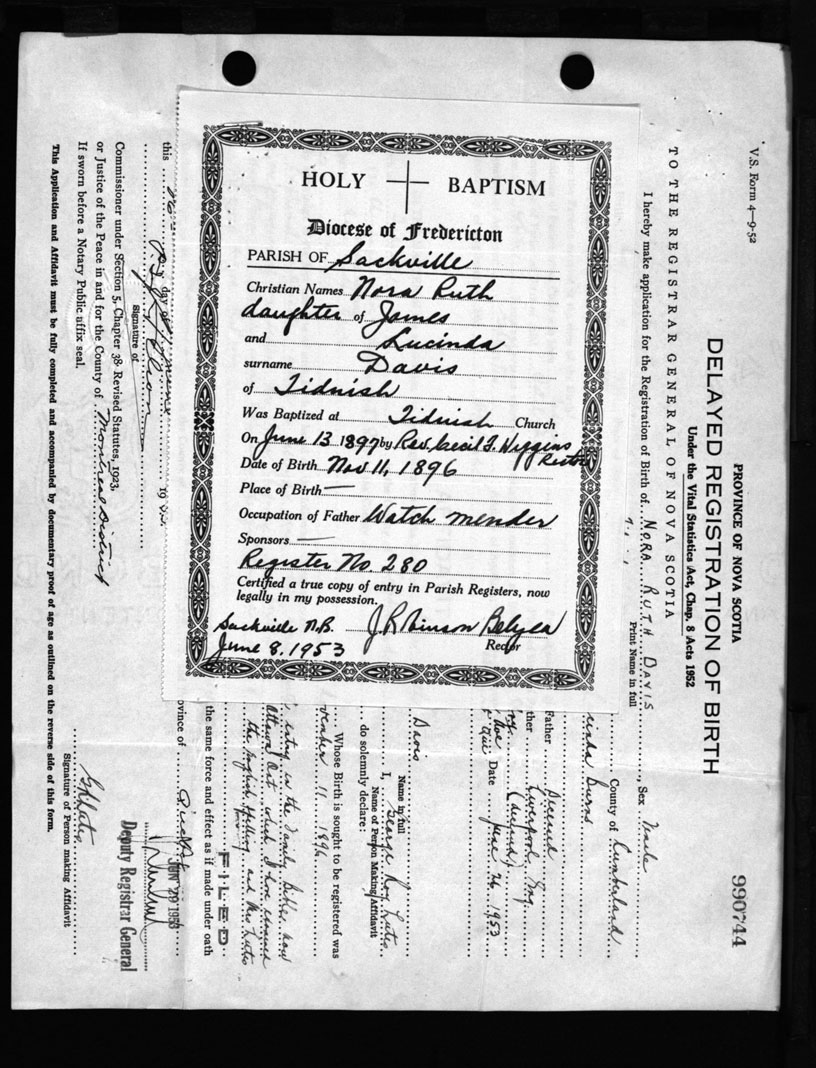 HOLY BAPTISM
Diocese of Fredericton
PARISH OF Sackville
Christian Names Nora Ruth
daughter of James
and Lucinda
surname Davis
of Tidnish
Was Baptized at Tidnish Church
On June 13 1897 by Rev. Cecil F. Wiggins
Rector
Date of Birth Nov 11, 1896
Place of Birth —
Occupation of Father Watch mender
Sponsors —
Register No. 280
Certified a true copy of entry in Parish Registers, now
legally in my possession.
Sackville N.B.
June 8, 1953
Rector
V.S. Form 4—9-52
PROVINCE OF NOVA SCOTIA
DELAYED REGISTRATION OF BIRTH
Under the Vital Statistics Act, Chap. 8 Acts 1952
990744
TO THE REGISTRAR GENERAL OF NOVA SCOTIA
I hereby make application for the Registration of Birth of NORA RUTH DAVIS, Sex
Print Name in full
County of Cumberland
Burns
Father Deceased
Liverpool Eng
Date June 26 1953
Davis
Name in full
I, George Roy
Name of Person Making Affidavit
do solemnly declare:
Whose Birth is sought to be registered was
11 1896
entry in the family Bible now
which I have examined
the English spelling and Mrs
FILED
the same force and effect as if made under oath
JUN 29 1953
Deputy Registrar General
this day of
Signature of
Commissioner under Section 5, Chapter 38 Revised Statutes, 1923,
or Justice of the Peace in and for the County of Montreal District
If sworn before a Notary Public affix seal.
Signature of Person making Affidavit
This Application and Affidavit must be fully completed and accompanied by documentary proof of age as outlined on the reverse side of this form.